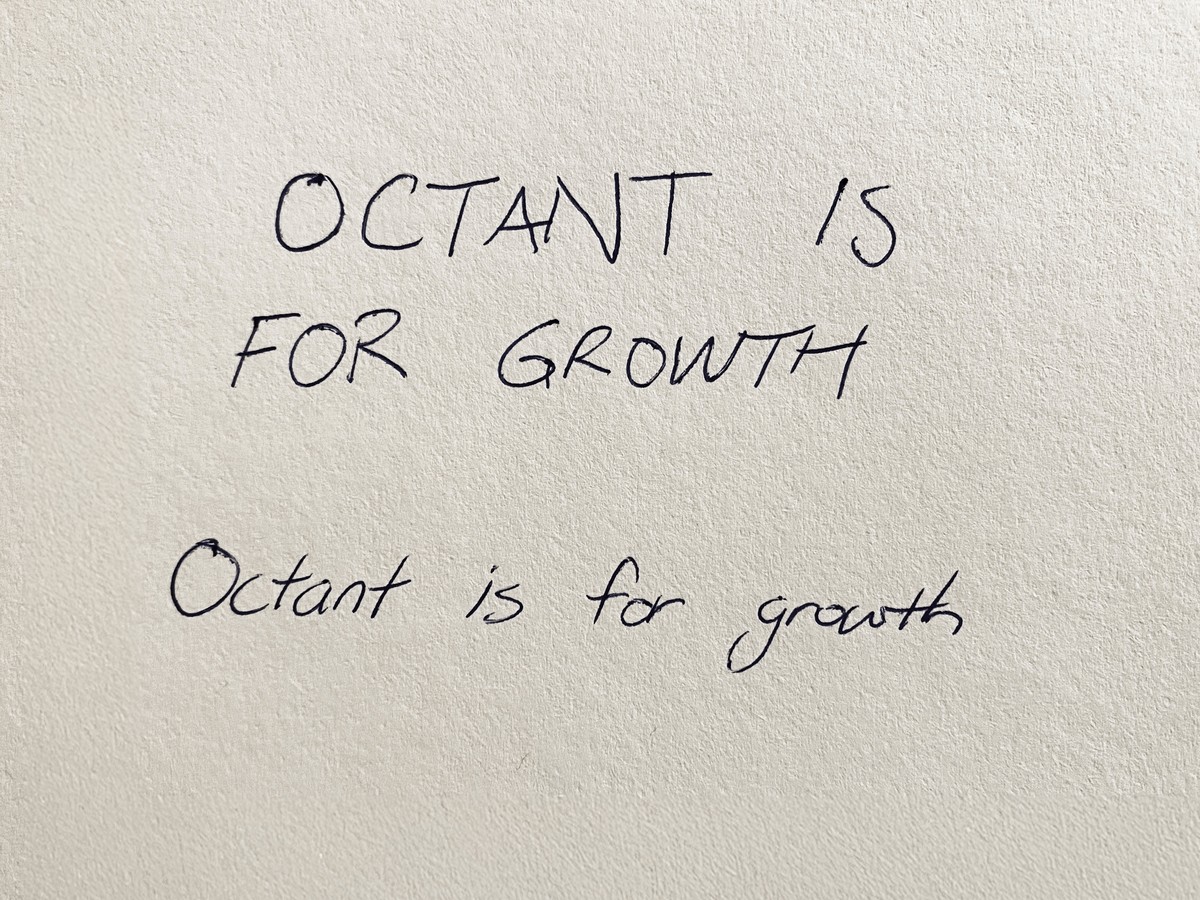 OCTANT IS
FOR GROWTH
Octant is for growth